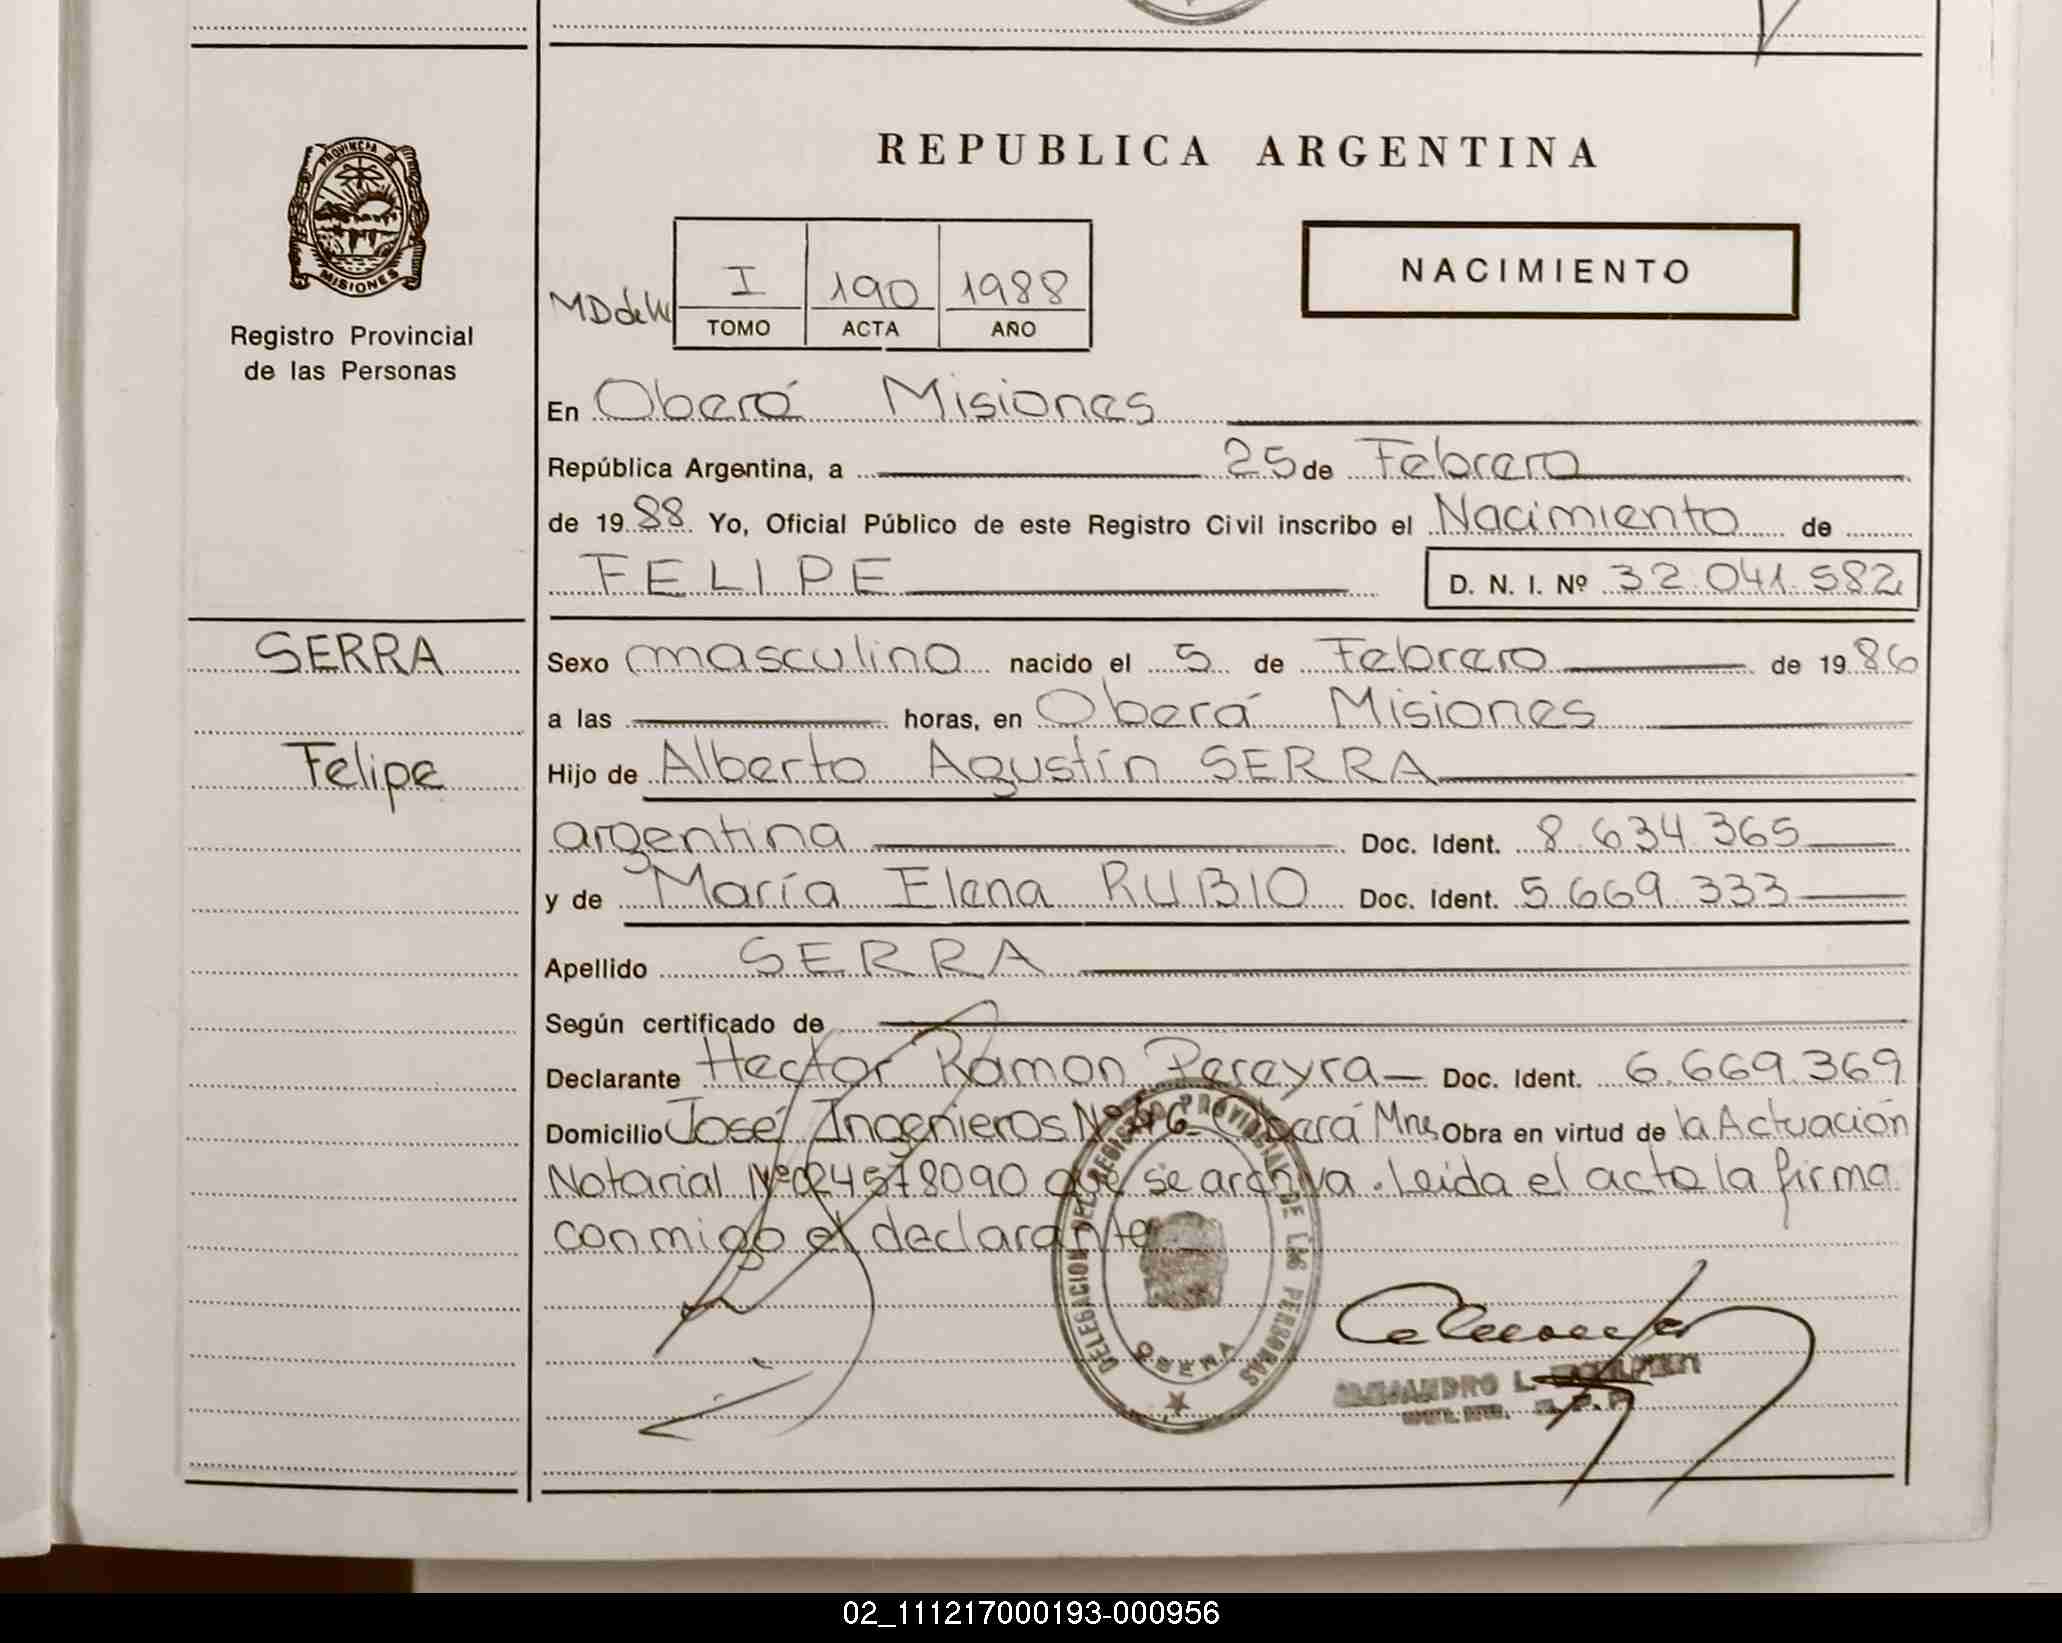 REPUBLICA ARGENTINA
PROVINCIA DE
MISIONES
Registro Provincial
de las Personas
I 190 1988
TOMO ACTA AÑO
NACIMIENTO
En Oberá Misiones
República Argentina, a 25 de Febrero
de 1988 Yo, Oficial Público de este Registro Civil inscribo el Nacimiento de
FELIPE D. N. I. Nº 32.041.582
SERRA
Felipe
Sexo masculino nacido el 5 de Febrero de 1986
a las horas, en Oberá Misiones
Hijo de Alberto Agustín SERRA
argentina Doc. Ident. 8.634.365
y de María Elena RUBIO Doc. Ident. 5.669.333
Apellido SERRA
Según certificado de
Declarante Hector Ramon Pereyra Doc. Ident. 6.669.369
Domicilio José Ingenieros Oberá Mnes Obra en virtud de la Actuación
Notarial Nº 024578090 que se archiva. Leida el acta la firma
conmigo el declarante
DELEGACION DEL REGISTRO PROVINCIAL DE LAS PERSONAS
OBERA
ALEJANDRO L.
02_111217000193-000956